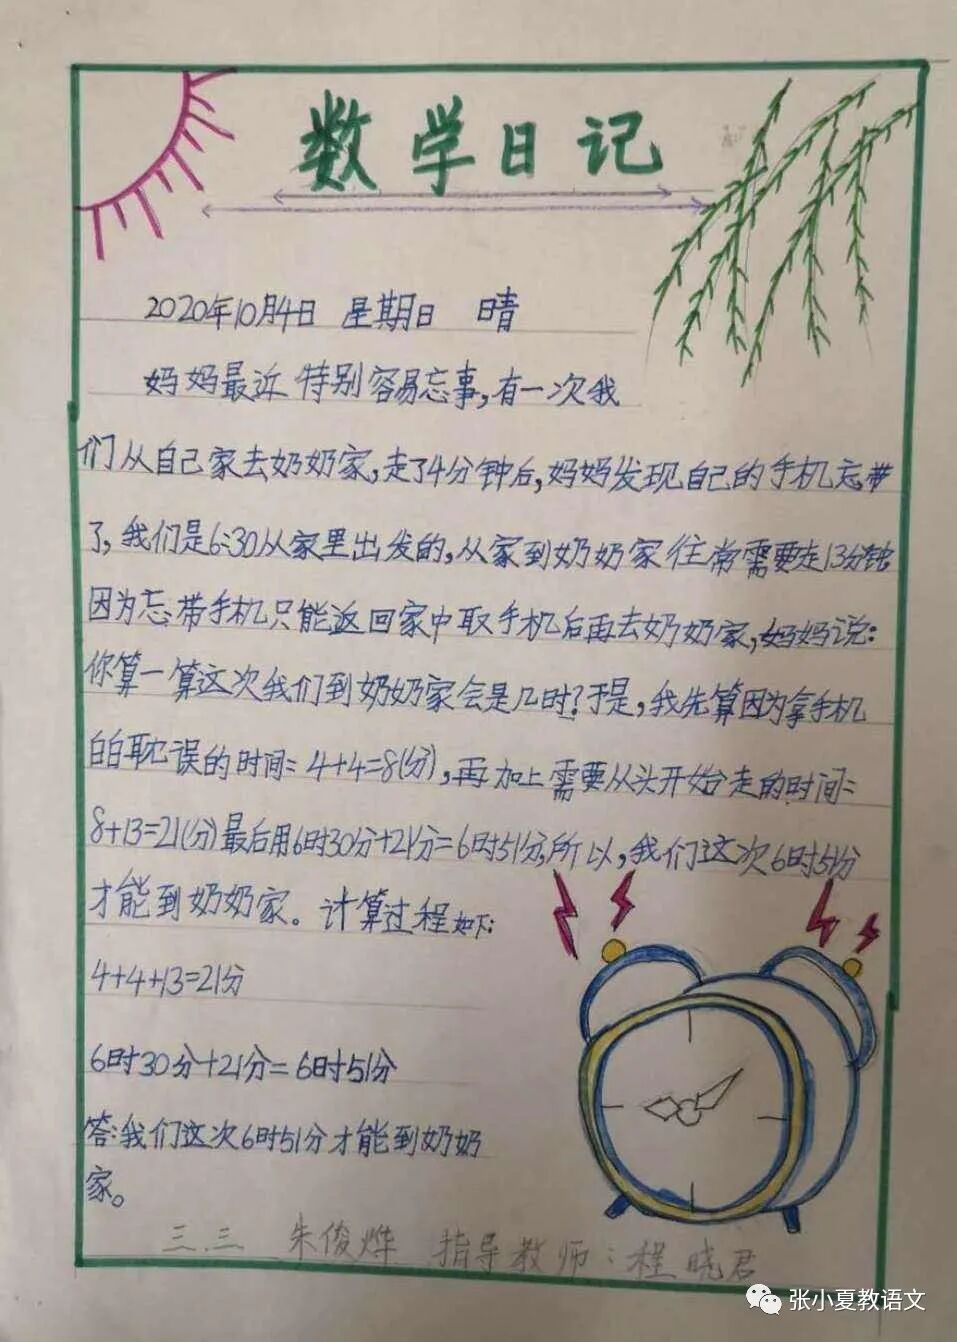 数学日记
2020年10月4日 星期日 晴
妈妈最近特别容易忘事,有一次我
们从自己家去奶奶家,走了4分钟后,妈妈发现自己的手机忘带
了,我们是6:30从家里出发的,从家到奶奶家往常需要走13分钟
因为忘带手机只能返回家中取手机后再去奶奶家,妈妈说:
你算一算这次我们到奶奶家会是几时?于是,我先算因为拿手机
的耽误的时间=4+4=8(分),再加上需要从头开始走的时间=
8+13=21(分)最后用6时30分+21分=6时51分,所以,我们这次6时51分
才能到奶奶家。计算过程如下:
4+4+13=21分
6时30分+21分=6时51分
答:我们这次6时51分才能到奶奶
家。
三.三 朱俊烨 指导教师:程晓君
张小夏教语文